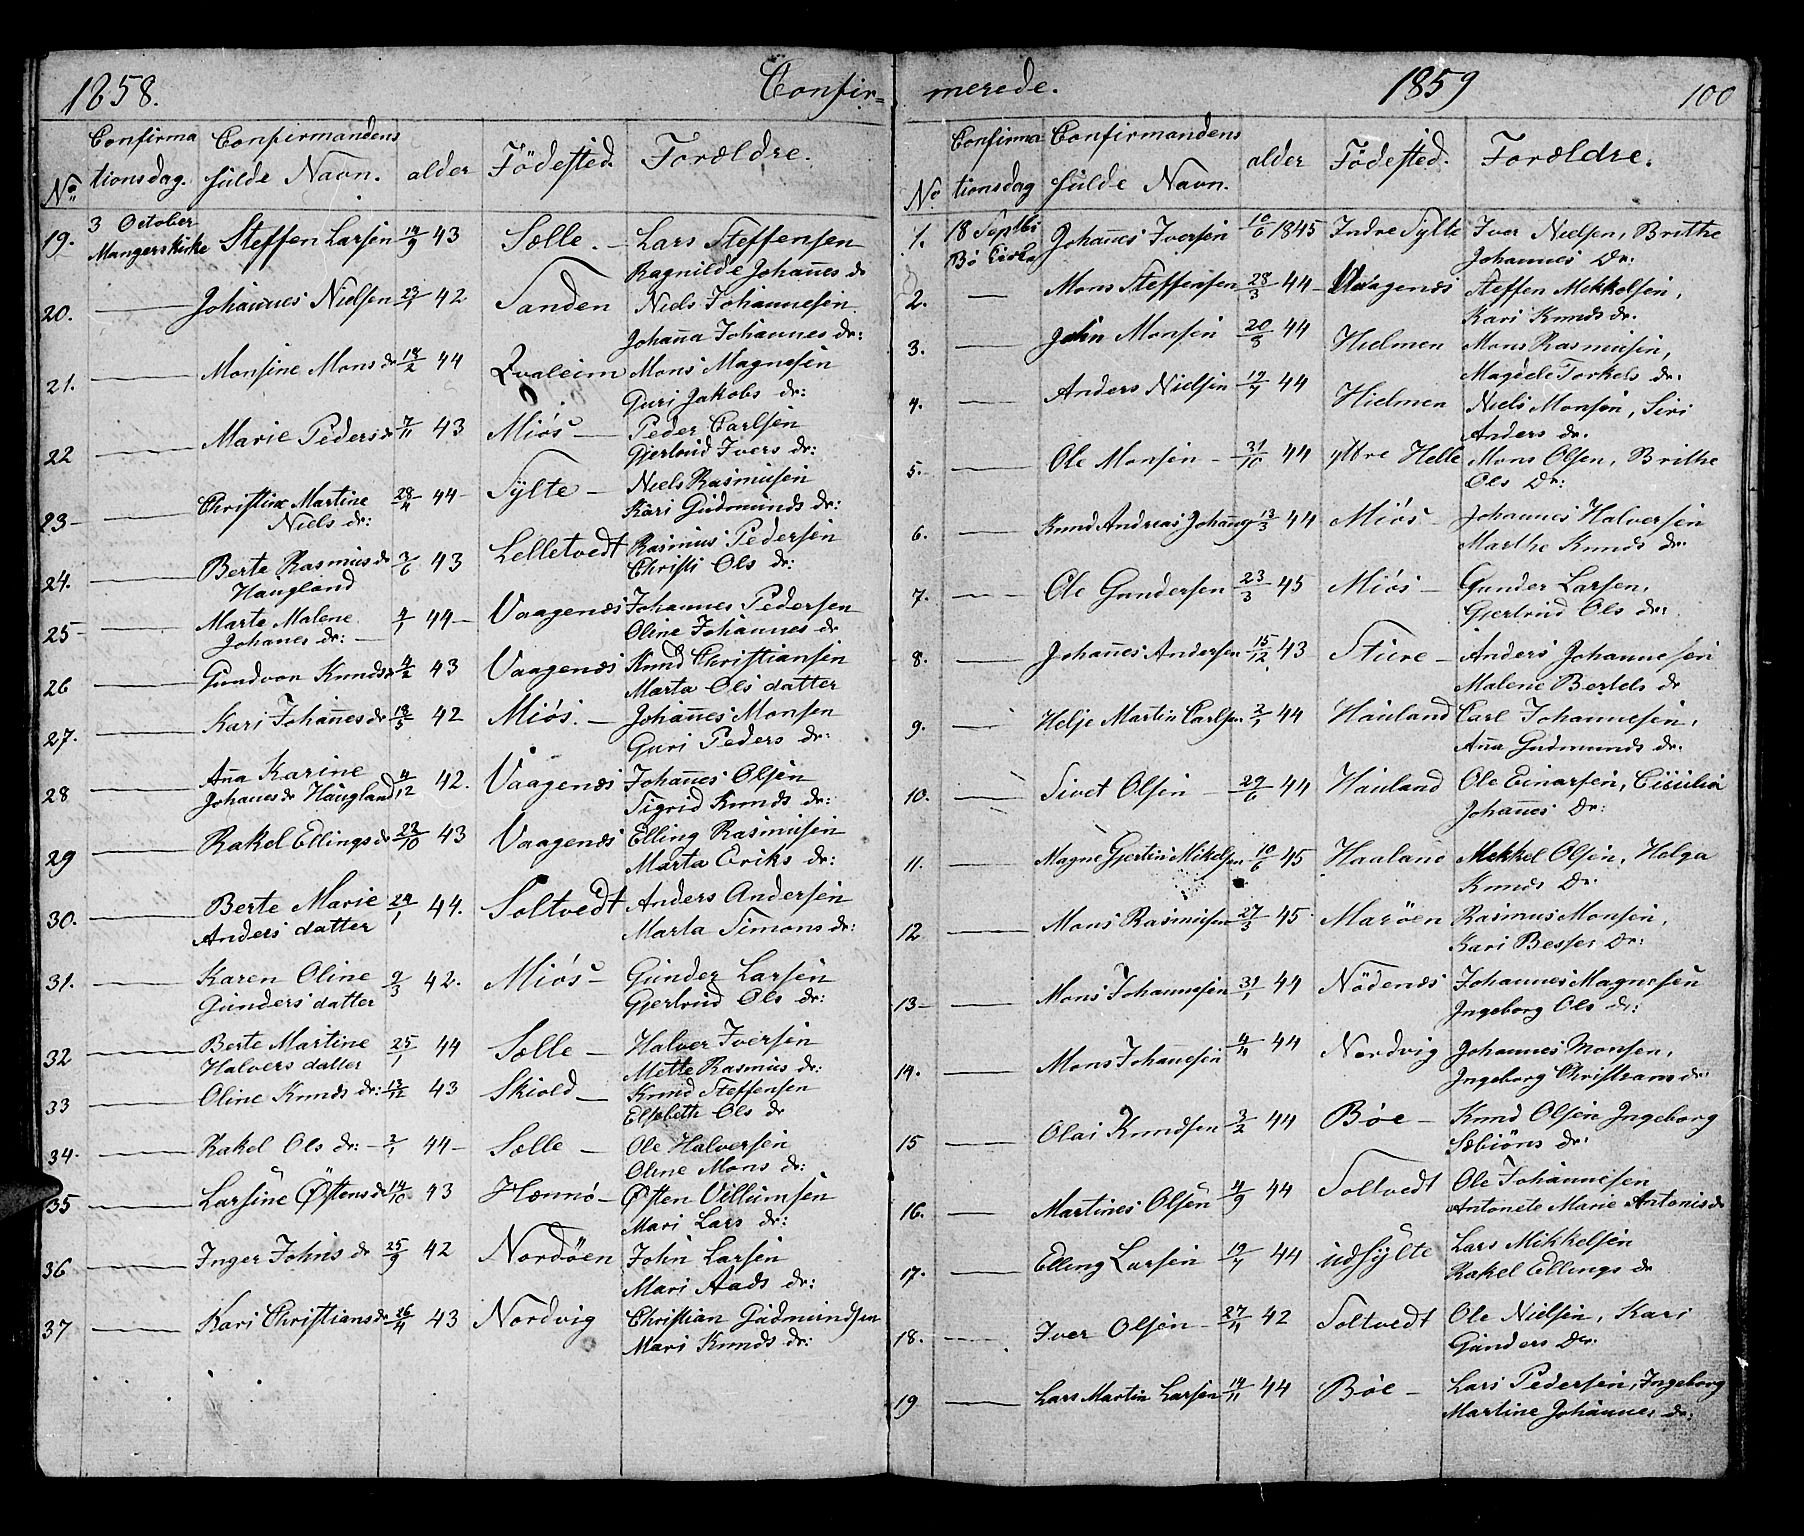 1858. Confir-
Confirma Confirmandens
No. tionsdag. fulde Navn. alder Födested. Forældre.
19. 3 October Steffen Larsen 14/9 43 Sælle. – Lars Steffensen
Mangerskirke Ragnilde Johanes dr
20. — Johannes Nielsen 23/1 42 Sanden Niels Johannesen
Johana Johannes dr:
21. — Monsine Mons dr 18/2 44 Qvaleim Mons Magnesen
Guri Jakobs dr:
22 — Marie Peders dr 7/11 43 Miös – Peder Carlsen
Gjertrud Ivers dr:
23 – — Christine Martine 28/4 44 – Sylte – Niels Rasmusen
Niels dr: Kari Gudmunds dr:
24. — Berte Rasmus dr 3/6 43 Lelletvedt Rasmus Pedersen
Haugland Christi Ols dr:
25 – — Marte Malene 4/1 44 – Vaagenæs Johannes Pedersen
Johanes dr: – Oline Johannes dr
26 — Gundvor Knuds dr 4/2 43 Vaagenæs Knud Christiansen
Marta Ols datter
27. — Kari Johanes dr 18/5 42 Miös. – Johanes Monsen
Guri Peders dr:
28 — Ana Karine 4/12 42. Vaagenæs Johanes Olsen
Johanes dr Haugland Sigrid Knuds dr:
29 — Rakel Ellings dr 22/10 43 Vaagenæs Elling Rasmusen
Marta Eriks dr:
30. — Berte Marie 24/1 44. Soltvedt Anders Andersen
Anders datter Marta Simons dr:
31. Karen Oline 9/3 42. Miös – Gunder Larsen
Gunders datter Gjertrud Ols dr:
32 — Berte Martine 25/1 44 Sælle – Halver Iversen
Halvers datter Mette Rasmus dr:
33 — Oline Knuds dr: 13/12 43 Skiold – Knud Steffensen
Elsebeth Ols dr
34. — Rakel Ols dr: – 3/1 44 – Sælle – Ole Halversen
Oline Mons dr:
35 — Larsine Østens dr 14/10 43 Hænnö – Østen Villumsen
Mari Lars dr:
36 — Inger Johns dr 25/9 42 Nordöen John Larsen
Mari Aads dr:
37 — Kari Christians dr 26/4 43 Nordvig Christian Gudmundsen
Mari Knuds dr:
merede. 1859 100
Confirma Confirmandens
No tionsdag fulde Navn. alder Födested. Forældre.
1. 18 Septbr Johanes Iversen 10/6 1845 Indre Sylte Iver Nielsen, Brithe
Bö Johannes Dr:
2. — Mons Steffensen 28/3 44 – Vaagenæs Steffen Mikkelsen,
Kari Knuds dr.
3. — John Monsen 20/8 44 Hielmen Mons Rasmusen,
Magdele Torkels dr.
4. — Anders Nielsen 19/7 44 Hielmen Niels Monsen, Siri
Anders dr.
5. — Ole Monsen – 31/10 44 yttre Helle Mons Olsen, Brithe
Ols Dr:
6. — Knud Andreas Johanes 13/3 44 Miös – Johannes Halversen
Marthe Knuds dr.
7. — Ole Gundersen 23/3 45 Miös – Gunder Larsen,
Gjertrud Ols dr:
8. — Johanes Andersen 15/12 43 Sture – Anders Johannesen
Malene Bertels dr
9. — Helje Martin Carlsen 2/1 44 Hauland Carl Johannesen,
Ana Gudmunds dr.
10. — Sivet Olsen – 29/6 44 Hauland Ole Einarsen, Cicilia
Johanes Dr:
11. — Magne Gjertin Mikelsen 10/6 45 Haaland Mikkel Olsen, Helga
Knuds Dr.
12 — Mons Rasmusen 27/3 45 Maröen Rasmus Monsen,
Kari Besser Dr:
13 – — Mons Johannesen 31/1 44 Nödenæs Johannes Magnesen
Ingeborg Ols dr:
14. — Mons Johanesen 4/4 44 Nordvig Johannes Monsen,
Ingeborg Christians dr:
15 — Olai Knudsen 3/2 44 Böe – Knud Olsen Ingeborg
Sebiöns dr.
16. — Martines Olsen 4/9 44 Soltvedt Ole Johannesen
Antonete Marie Antonis dr
17. — Elling Larsen 19/7 44 udsylte Lars Mikkelsen
Rakel Ellings dr
18. — Iver Olsen – 27/11 42 Soltvedt Ole Nielsen, Kari
Gunders Dr.
19 — Lars Martin Larsen 14/11 44 Böe – Lars Pedersen, Ingeborg
Martine Johannes dr: